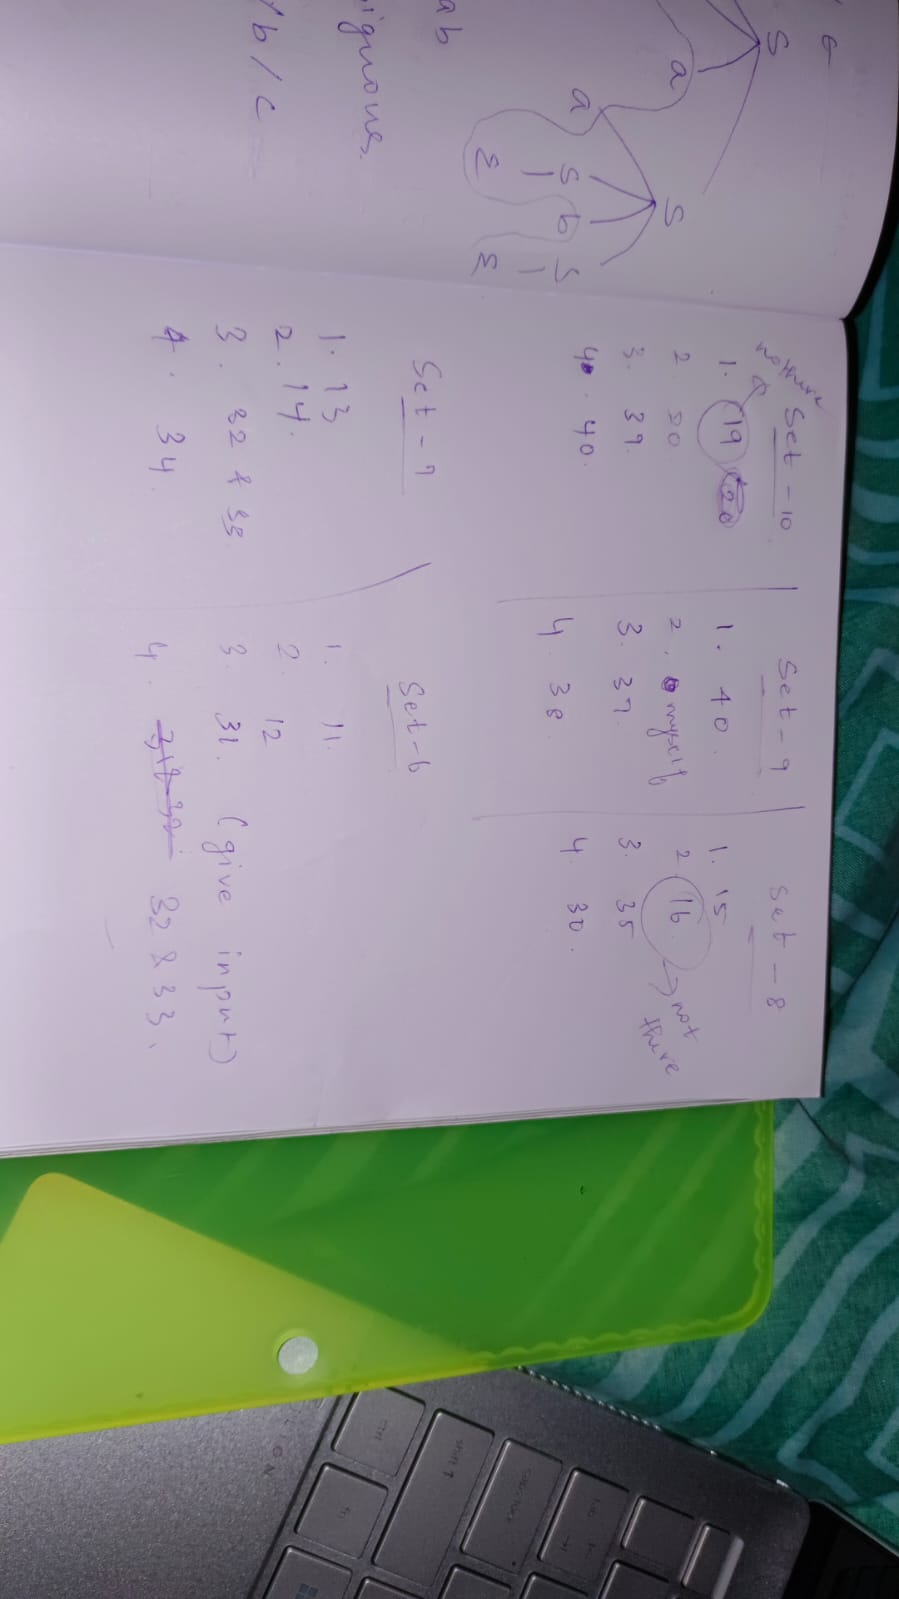 S
a
S
a
S
b
S
Σ
Σ
ab
b/c
Set-10
1. 19
2. 20
3. 39.
4. 40.
Set-9
1. 40.
2. myself
3. 37.
4. 38.
Set-8
1. 15
2. 16. → not there
3. 35
4. 30.
Set-7
1. 13
2. 14.
3. 32 & 33.
4. 34.
Set-6
1. 11.
2. 12
3. 31. (give input)
4. 32 & 33.